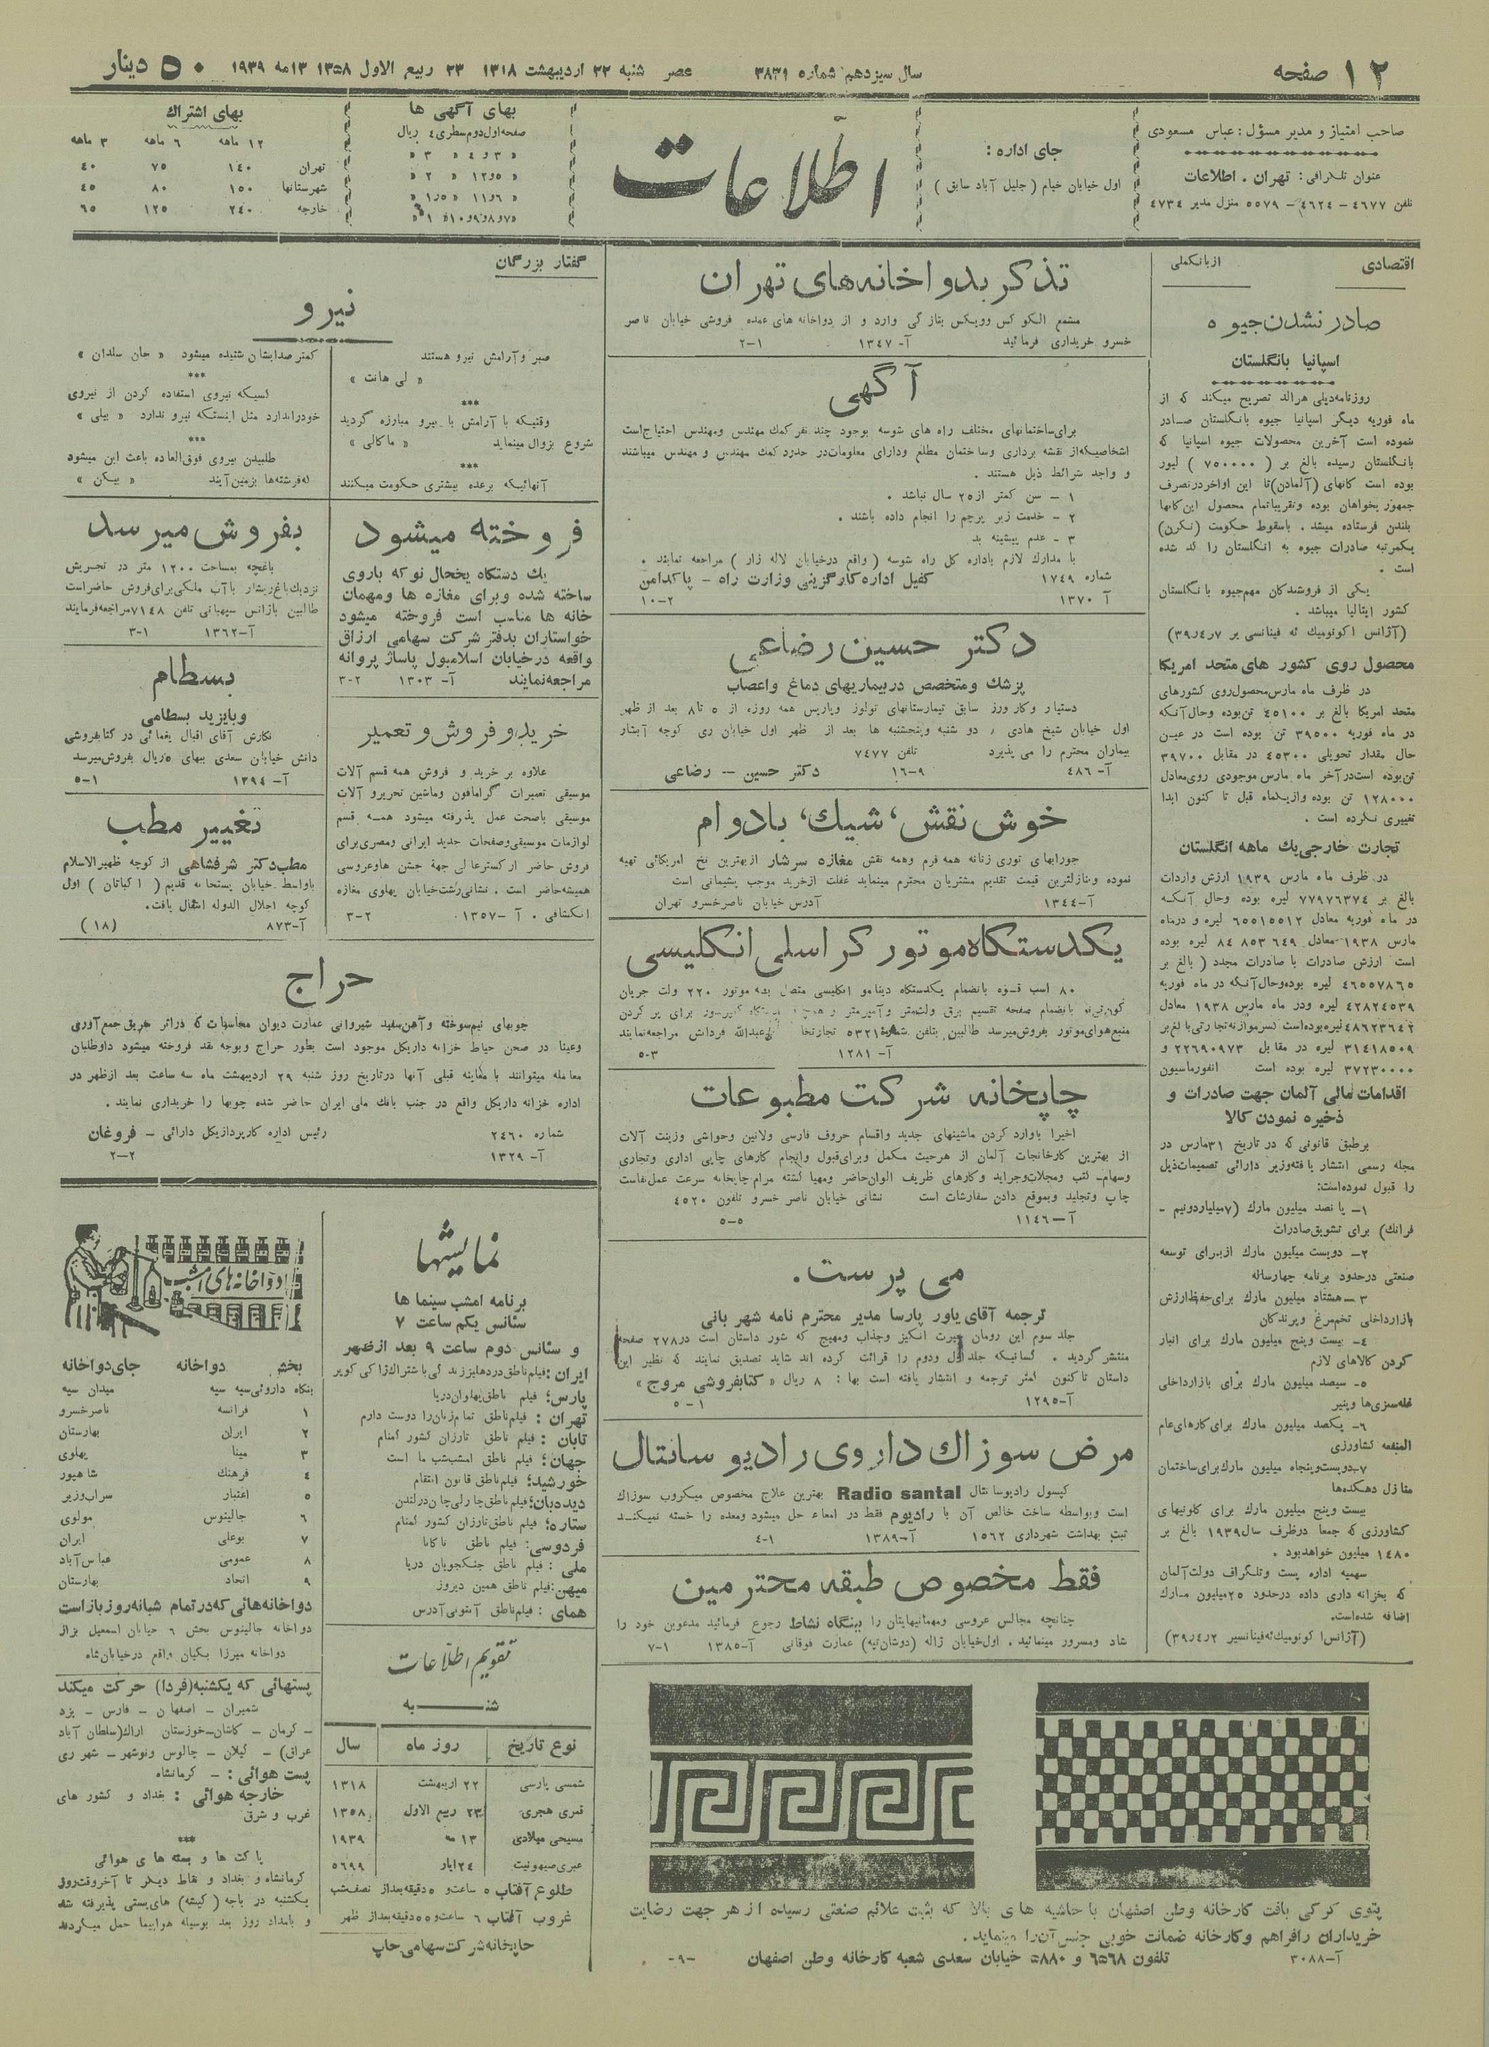 ۱۲ صفحه
سال سیزدهم شماره ۳۸۳۱
عصر شنبه ۲۲ اردیبهشت ۱۳۱۸ ۲۳ ربیع الاول ۱۳۵۸ ۱۳ مه ۱۹۳۹
۵۰ دینار
صاحب امتیاز و مدیر مسؤل: عباس مسعودی
عنوان تلگرافی: تهران . اطلاعات
تلفن ۴۶۷۷ – ۴۶۲۴ – ۵۵۷۹ منزل مدیر ۴۷۳۴
جای اداره :
اول خیابان خیام ( جلیل آباد سابق )
اطلاعات
بهای آگهی ها
صفحه اول دوم سطری ٤ ریال
بهای اشتراك
۱۲ ماهه ۶ ماهه ۳ ماهه
تهران ۱۴۰ ۷۵ ۴۰
شهرستانها ۱۵۰ ۸۰ ۴۵
خارجه ۲۴۰ ۱۲۵ ۶۵
اقتصادی
از بانکملی
صادر نشدن جیوه
اسپانیا بانگلستان
روزنامه دیلی هرالد تصریح میکند که از
ماه فوریه دیگر اسپانیا جیوه بانگلستان صادر
ننموده است آخرین محصولات جیوه اسپانیا که
بانگلستان رسیده بالغ بر ( ۷۵۰۰۰۰ ) لیور
بوده است کانهای (آلمادن) تا این اواخر در تصرف
جمهوریخواهان بوده و تقریباً تمام محصول این کانها
بلندن فرستاده میشد. باسقوط حکومت (نگرن)
یکمرتبه صادرات جیوه به انگلستان را کد شده
است .
یکی از فروشندگان مهم جیوه بانگلستان
کشور ایتالیا میباشد .
محصول روی کشور های متحد امریکا
در ظرف ماه مارس محصول روی کشورهای
متحد امریکا بالغ بر ۴۵۱۰۰ تن بوده و حال آنکه
در ماه فوریه ۳۹۵۰۰ تن بوده است در عین
حال مقدار تحویلی ۴۵۳۰۰ در مقابل ۳۹۷۰۰
تن بوده است در آخر ماه مارس موجودی روی معادل
۱۲۸۰۰۰ تن بوده و از یکماه قبل تا کنون ابدا
تغییری نکرده است .
تجارت خارجی یك ماهه انگلستان
در ظرف ماه مارس ۱۹۳۹ ارزش واردات
بالغ بر ۷۷۹۷۶۳۷۴ لیره بوده و حال آنکه
در ماه فوریه معادل ۶۵۵۱۵۵۱۲ لیره و در ماه
مارس ۱۹۳۸ معادل ۸۴۸۵۳۶۴۹ لیره بوده
است ارزش صادرات با صادرات مجدد ( بالغ بر
۴۶۵۵۷۸۶۵ لیره بوده و حال آنکه در ماه فوریه
۴۲۸۲۴۵۳۹ لیره و در ماه مارس ۱۹۳۸ معادل
لیره بوده است کسر موازنه تجارتی بالغ بر
۳۱۴۱۸۵۰۹ لیره در مقابل ۲۲۶۹۰۹۷۳ و
۳۷۲۳۰۰۰۰ لیره بوده است انفورماسیون
اقدامات مالی آلمان جهت صادرات و
ذخیره نمودن کالا
برطبق قانونی که در تاریخ ۳۱ مارس در
مجله رسمی انتشار یافته وزیر دارائی تصمیمات ذیل
را قبول نموده است:
۱– پانصد میلیون مارك (۷ میلیارد و نیم –
فرانك) برای تشویق صادرات
۲– دویست میلیون مارك از برای توسعه
صنعتی در حدود برنامه چهار ساله
۳– هشتاد میلیون مارك برای حفظ ارزش
بازار داخلی تخم مرغ و پرندگان
۴– بیست و پنج میلیون مارك برای انبار
کردن کالاهای لازم
۵– سیصد میلیون مارك برای بازار داخلی
سبزی ها و پنیر
۶– یکصد میلیون مارك برای کارهای عام
المنفعه کشاورزی
۷– دویست و پنجاه میلیون مارك برای ساختمان
منازل دهکده ها
بیست و پنج میلیون مارك برای کلونیهای
کشاورزی که جمعا در ظرف سال ۱۹۳۹ بالغ بر
۱۴۸۰ میلیون خواهد بود .
سهمیه اداره پست و تلگراف دولت آلمان
که بخزانه داری داده در حدود ۲۵ میلیون مارك
اضافه شده است.
تذکر بدواخانه های تهران
مشمع الکوکس و ویکس بتازگی وارد و از دواخانه های عمده فروشی خیابان ناصر
خسرو خریداری فرمائید آ– ۱۳۴۷ ۲–۱
آگهی
برای ساختمانهای مختلف راه های شوسه بوجود چند نفر کمك مهندس و مهندس احتیاج است
اشخاصیکه از نقشه برداری و ساختمان مطلع و دارای معلومات در حدود کمك مهندس و مهندس میباشند
و واجد شرائط ذیل هستند .
۱ – سن کمتر از ۲۵ سال نباشد .
۲ – خدمت زیر پرچم را انجام داده باشند .
۳ – عدم پیشینه بد
با مدارك لازم باداره کل راه شوسه ( واقع در خیابان لاله زار ) مراجعه نمایند .
شماره ۱۷۴۹ کفیل اداره کارگزینی وزارت راه – پاکدامن
آ ۱۳۷۰ ۲–۱۰
دکتر حسین رضاعی
پزشك و متخصص در بیماریهای دماغ و اعصاب
دستیار و کارورز سابق تیمارستانهای تولوز و پاریس همه روزه از ۵ تا ۸ بعد از ظهر
اول خیابان شیخ هادی ، دو شنبه و پنجشنبه ها بعد از ظهر اول خیابان ری کوچه آبشار
بیماران محترم را می پذیرد تلفن ۷۴۷۷
آ– ۴۸۶ ۹–۱۶ دکتر حسین – رضاعی
خوش نقش، شیك، بادوام
جورابهای توری زنانه همه فرم و همه نقش مغازه سرشار از بهترین نخ امریکائی تهیه
نموده و بنازلترین قیمت تقدیم مشتریان محترم مینماید غفلت از خرید موجب پشیمانی است
آ–۱۳۴۴ آدرس خیابان ناصر خسرو تهران
یکدستگاه موتور کراسلی انگلیسی
۸۰ اسب قوه بانضمام یکدستگاه دینامو انگلیسی متصل بده موتور ۲۲۰ ولت جریان
بانضمام صفحه تقسیم برق ولتمتر و آمپرمتر برای پر کردن
منبع هوای موتور بفروش میرسد طالبین بتلفن شماره ۵۳۲۱ تجارتخانه عبدالله فردانش مراجعه نمایند
آ– ۱۲۸۱ ۳–۵
چاپخانه شرکت مطبوعات
اخیرا با وارد کردن ماشینهای جدید و اقسام حروف فارسی و لاتین و حواشی و زینت آلات
از بهترین کارخانجات آلمان از هر حیث مکمل و برای قبول و انجام کارهای چاپی اداری و تجاری
و سهام– کتب و مجلات و جراید و کارهای ظریف الوان حاضر و مهیا گشته مرام چاپخانه سرعت عمل نفاست
چاپ و تجلید و بموقع دادن سفارشات است نشانی خیابان ناصر خسرو تلفون ۴۵۲۰
آ–۱۱۴۶ ۵–۵
می پرست.
ترجمه آقای یاور پارسا مدیر محترم نامه شهربانی
جلد سوم این رومان حیرت انگیز و جذاب و مهیج که شور داستان است در ۲۷۸ صفحه
منتشر گردید . کسانیکه جلد اول و دوم را قرائت کرده اند شاید تصدیق نمایند که نظیر این
داستان تاکنون کمتر ترجمه و انتشار یافته است بها: ۸ ریال « کتابفروشی مروج »
آ–۱۲۹۵ ۱–۵
مرض سوزاك داروی رادیو سانتال
کپسول رادیو سانتال Radio santal بهترین علاج مخصوص میکروب سوزاك
است و بواسطه ساخت خالص آن با رادیوم فقط در امعاء حل میشود و معده را خسته نمیکند
ثبت بهداشت شهرداری ۱۵۶۲ آ–۱۳۸۹ ۱–۴
فقط مخصوص طبقه محترمین
چنانچه مجالس عروسی و مهمانیهایتان را ببنگاه نشاط رجوع فرمائید مدعوین خود را
شاد و مسرور مینمائید. اول خیابان ژاله (دوشان تپه) عمارت فوقانی آ–۱۳۸۵ ۱–۷
گفتار بزرگان
نیرو
صبر و آرامش نیرو هستند
« لی هانت »
***
وقتیکه با آرامش با نیرو مبارزه گردید
شروع بزوال مینماید « ماکالی »
***
آنهائیکه برعده بیشتری حکومت میکنند
کمتر صدایشان شنیده میشود « جان سلدان »
***
کسیکه نیروی استفاده کردن از نیروی
خود را ندارد مثل اینستکه نیرو ندارد « بیلی »
***
طلبیدن نیروی فوق العاده باعث این میشود
که فرشته ها بزمین آیند « بیکن »
فروخته میشود
یك دستگاه یخچال نو که باروی
ساخته شده و برای مغازه ها و مهمان
خانه ها مناسب است فروخته میشود
خواستاران بدفتر شرکت سهامی ارزاق
واقعه در خیابان اسلامبول پاساژ پروانه
مراجعه نمایند آ– ۱۳۰۳ ۲–۳
خرید و فروش و تعمیر
علاوه بر خرید و فروش همه قسم آلات
موسیقی تعمیرات گرامافون و ماشین تحریر و آلات
موسیقی باصحت عمل پذیرفته میشود همه قسم
لوازمات موسیقی و صفحات جدید ایرانی و مصری برای
فروش حاضر ارکستر عالی جهة جشن ها و عروسی
همیشه حاضر است . نشانی رشت خیابان پهلوی مغازه
اکتشافی . آ –۱۳۵۷ ۲–۳
بفروش میرسد
باغچه بمساحت ۱۲۰۰ متر در تجریش
نزدیك باغ ریشار با آب ملکی برای فروش حاضر است
طالبین بآژانس سپهبانی تلفن ۷۱۴۸ مراجعه فرمایند
آ–۱۳۶۲ ۱–۳
بسطام
و بایزید بسطامی
نگارش آقای اقبال یغمائی در کتابفروشی
دانش خیابان سعدی ببهای ۵ ریال بفروش میرسد
آ– ۱۳۹۴ ۱–۵
تغییر مطب
مطب دکتر شرفشاهی از کوچه ظهیرالاسلام
باواسط خیابان پستخانه قدیم ( اکباتان ) اول
کوچه اجلال الدوله انتقال یافت.
آ–۸۷۳ (۱۸)
حراج
چوبهای نیمسوخته و آهن سفید شیروانی عمارت دیوان محاسبات که در اثر حریق جمع آوری
وعینا در صحن حیاط خزانه داریکل موجود است بطور حراج و بوجه نقد فروخته میشود داوطلبان
معامله میتوانند با معاینه قبلی آنها در تاریخ روز شنبه ۲۹ اردیبهشت ماه سه ساعت بعد از ظهر در
اداره خزانه داریکل واقع در جنب بانك ملی ایران حاضر شده چوبها را خریداری نمایند.
شماره ۲۴۶۰ رئیس اداره کارپردازیکل دارائی – فروغان
آ– ۱۳۲۹ ۲–۲
نمایشها
برنامه امشب سینما ها
سئانس یکم ساعت ۷
و سئانس دوم ساعت ۹ بعد از ظهر
پارس: فیلم ناطق پهلوان دریا
تهران : فیلم ناطق تمام زنان را دوست دارم
تابان : فیلم ناطق تارزان کشور گمنام
جهان: فیلم ناطق امشب شب ما است
خورشید: فیلم ناطق قانون انتقام
دیده بان: فیلم ناطق چارلی چان در لندن
ستاره: فیلم ناطق تارزان کشور گمنام
فردوسی: فیلم ناطق
ملی : فیلم ناطق جنگجویان دریا
میهن: فیلم ناطق همین دیروز
همای : فیلم ناطق آنتونی آدرس
تقویم اطلاعات
شنبه
نوع تاریخ روز ماه سال
شمسی پارسی ۲۲ اردیبهشت ۱۳۱۸
قمری هجری ۲۳ ربیع الاول ۱۳۵۸
مسیحی میلادی ۱۳ مه ۱۹۳۹
۲۴ ایار ۵۶۹۹
طلوع آفتاب ۵ ساعت و ۵ دقیقه بعد از نصف شب
غروب آفتاب ۶ ساعت و ۵۵ دقیقه بعد از ظهر
چاپخانه شرکت سهامی چاپ
دواخانه های امشب
بخش دواخانه جای دواخانه
بنگاه داروئی سپه سپه میدان سپه
۱ فرانسه ناصر خسرو
۲ ایران بهارستان
۳ مینا پهلوی
۴ فرهنك شاهپور
۵ اعتبار سراب وزیر
۶ جالینوس مولوی
۷ بوعلی ایران
۸ عمومی عباس آباد
۹ اتحاد بهارستان
دواخانه هائی که در تمام شبانه روز باز است
دواخانه جالینوس بخش ۶ خیابان اسمعیل بزاز
پستهائی که یکشنبه (فردا) حرکت میکند
شمیران – اصفهان – فارس – یزد
– کرمان – کاشان– خوزستان اراك (سلطان آباد
عراق) – گیلان – چالوس و نوشهر – شهر ری
پست هوائی : – کرمانشاه
خارجه هوائی : بغداد و کشور های
غرب و شرق
***
پاکت ها و بسته های هوائی
کرمانشاه و بغداد و نقاط دیگر تا آخر وقت روز
یکشنبه در باجه (گیشه) های پستی پذیرفته شده
و بامداد روز بعد بوسیله هواپیما حمل میگردند
پتوی کرکی بافت کارخانه وطن اصفهان با حاشیه های بالا که بثبت علائم صنعتی رسیده از هر جهت رضایت
خریداران را فراهم و کارخانه ضمانت خوبی جنس آن را مینماید.
آ–۳۰۸۸ تلفون ۶۵۶۸ و ۵۸۸۰ خیابان سعدی شعبه کارخانه وطن اصفهان –۹–